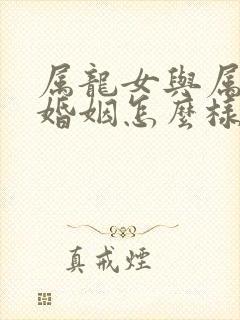 属龍女與属
婚姻怎麼樣
真戒煙